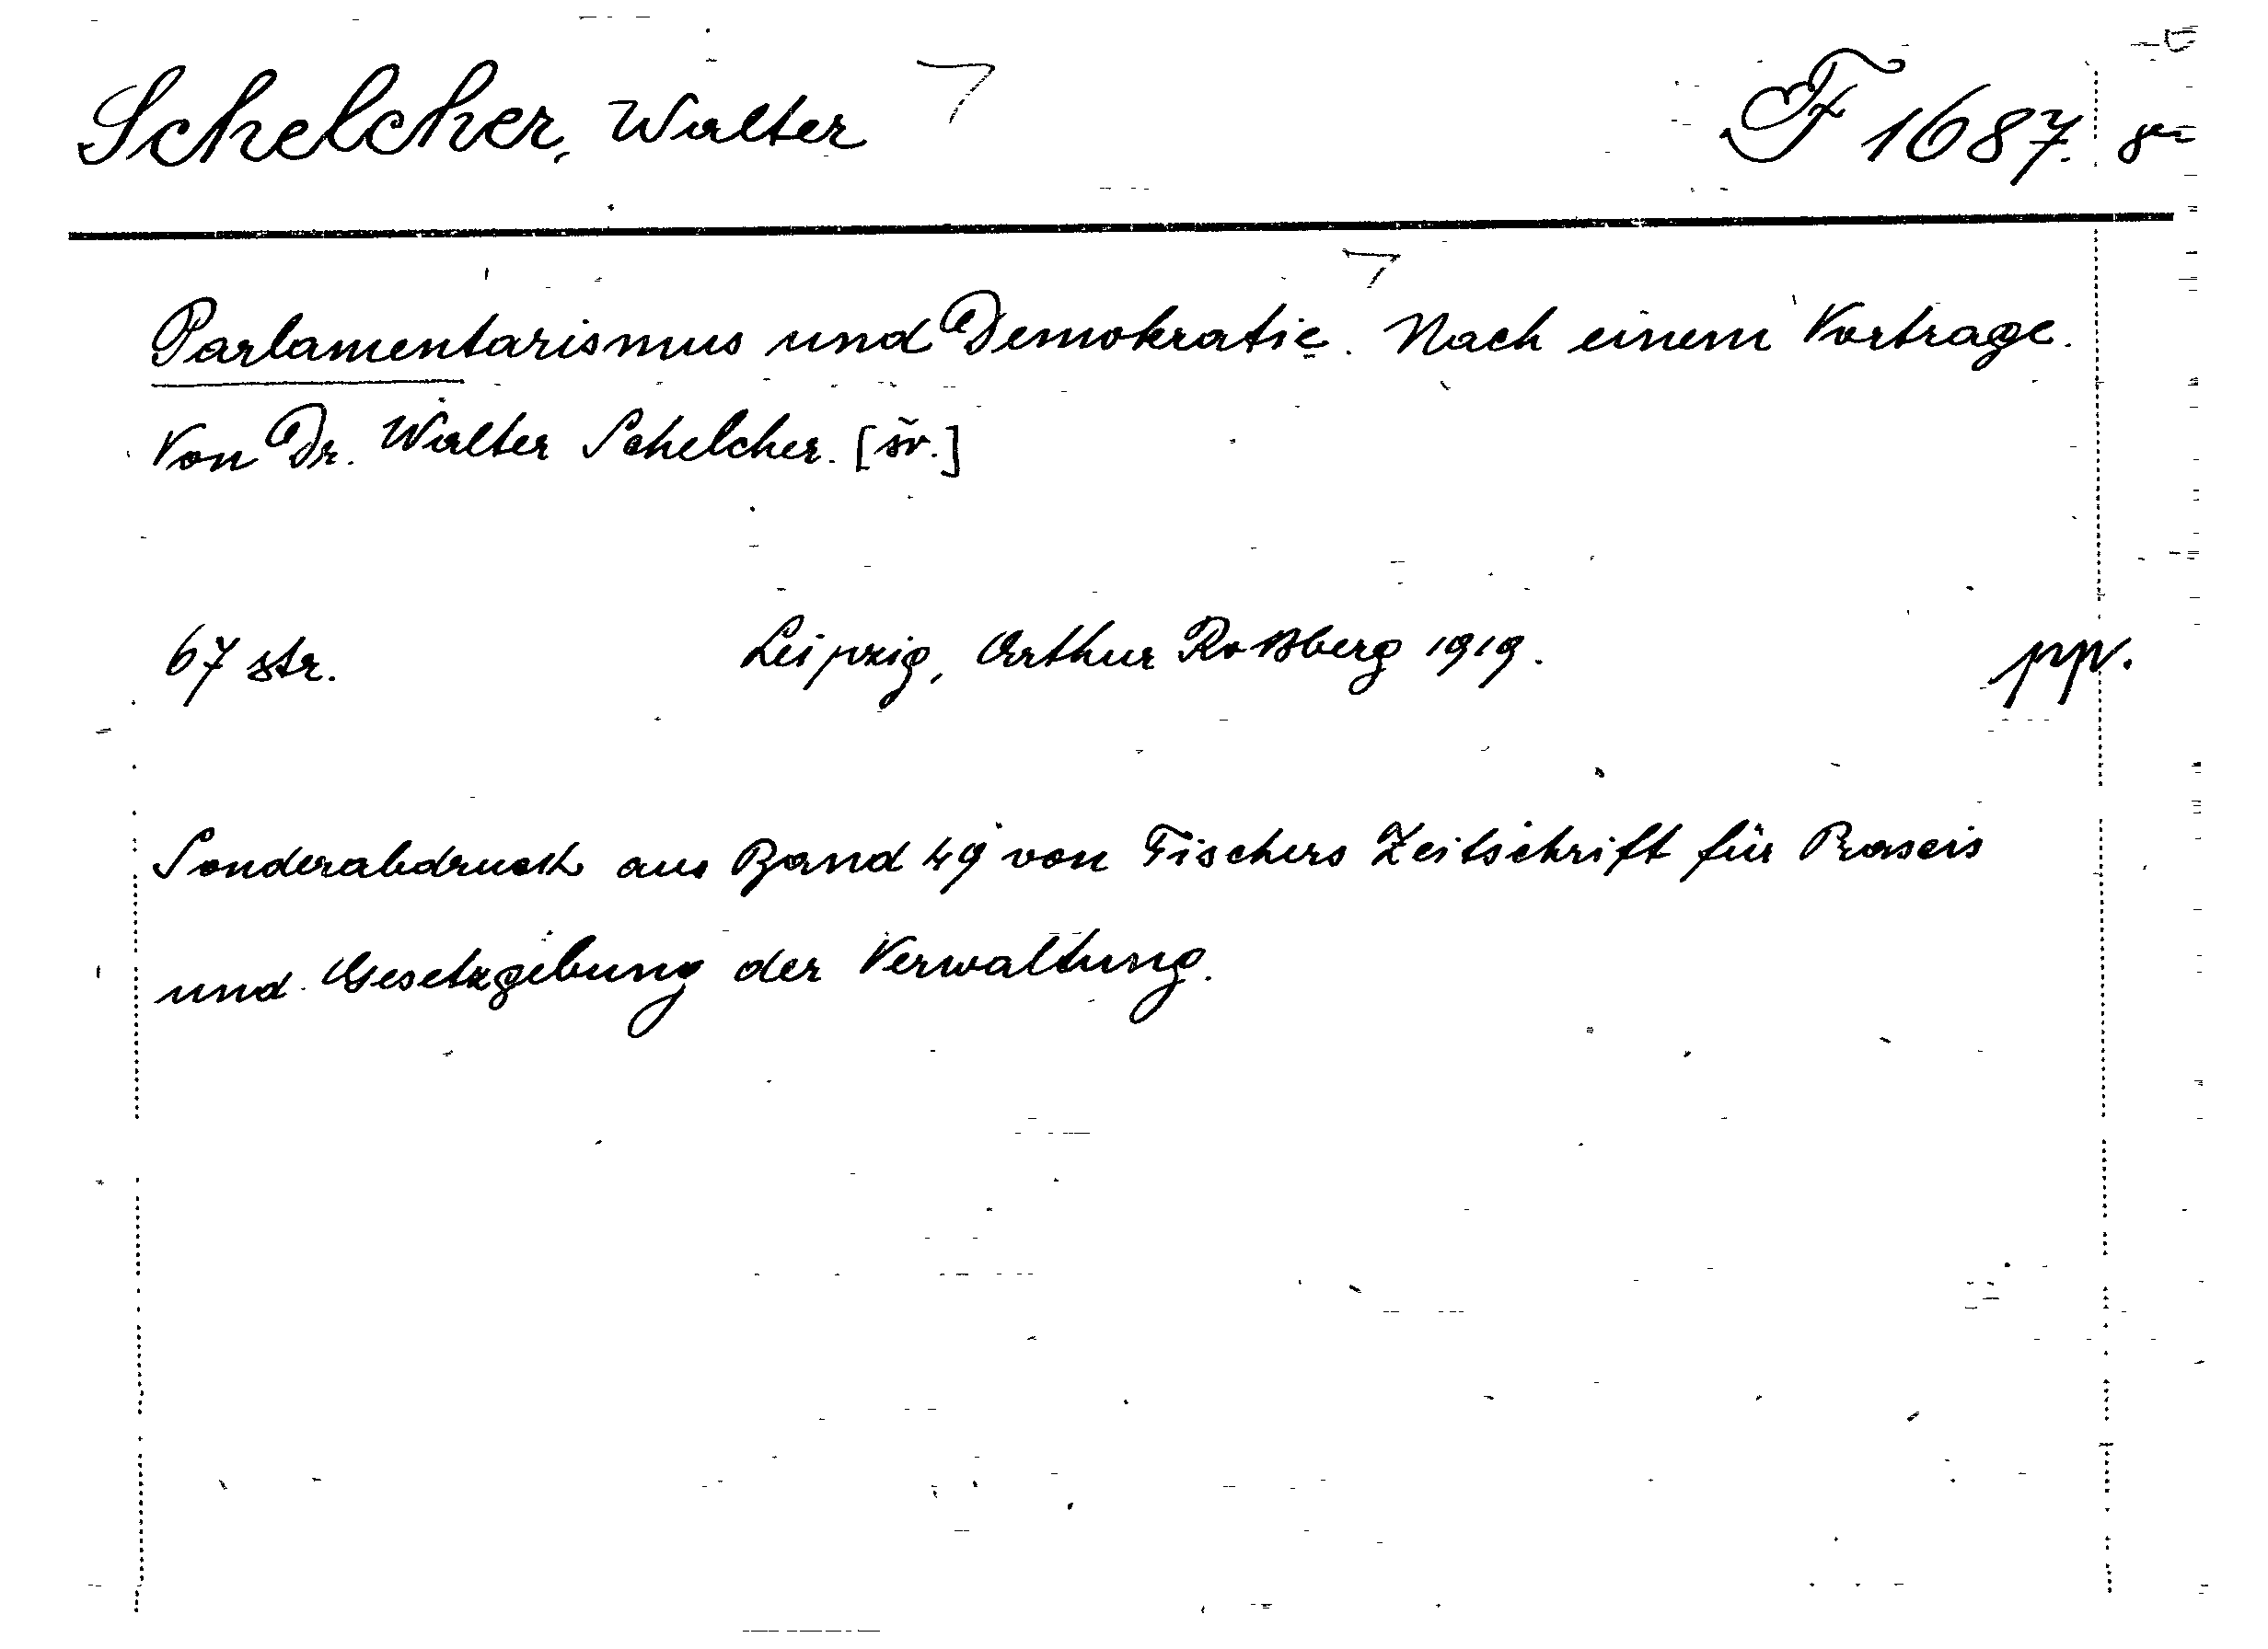 Schelcher, Walter F 1687. 8°
Parlamentarismus und Demokratie. Nach einem Vortrage.
Von Dr. Walter Schelcher. [šv.]
67 str. Leipzig, Arthur Roßberg 1919. pp.
Sonderabdruck aus Band 49 von Fischers Zeitschrift für Praxis
und Gesetzgebung der Verwaltung.